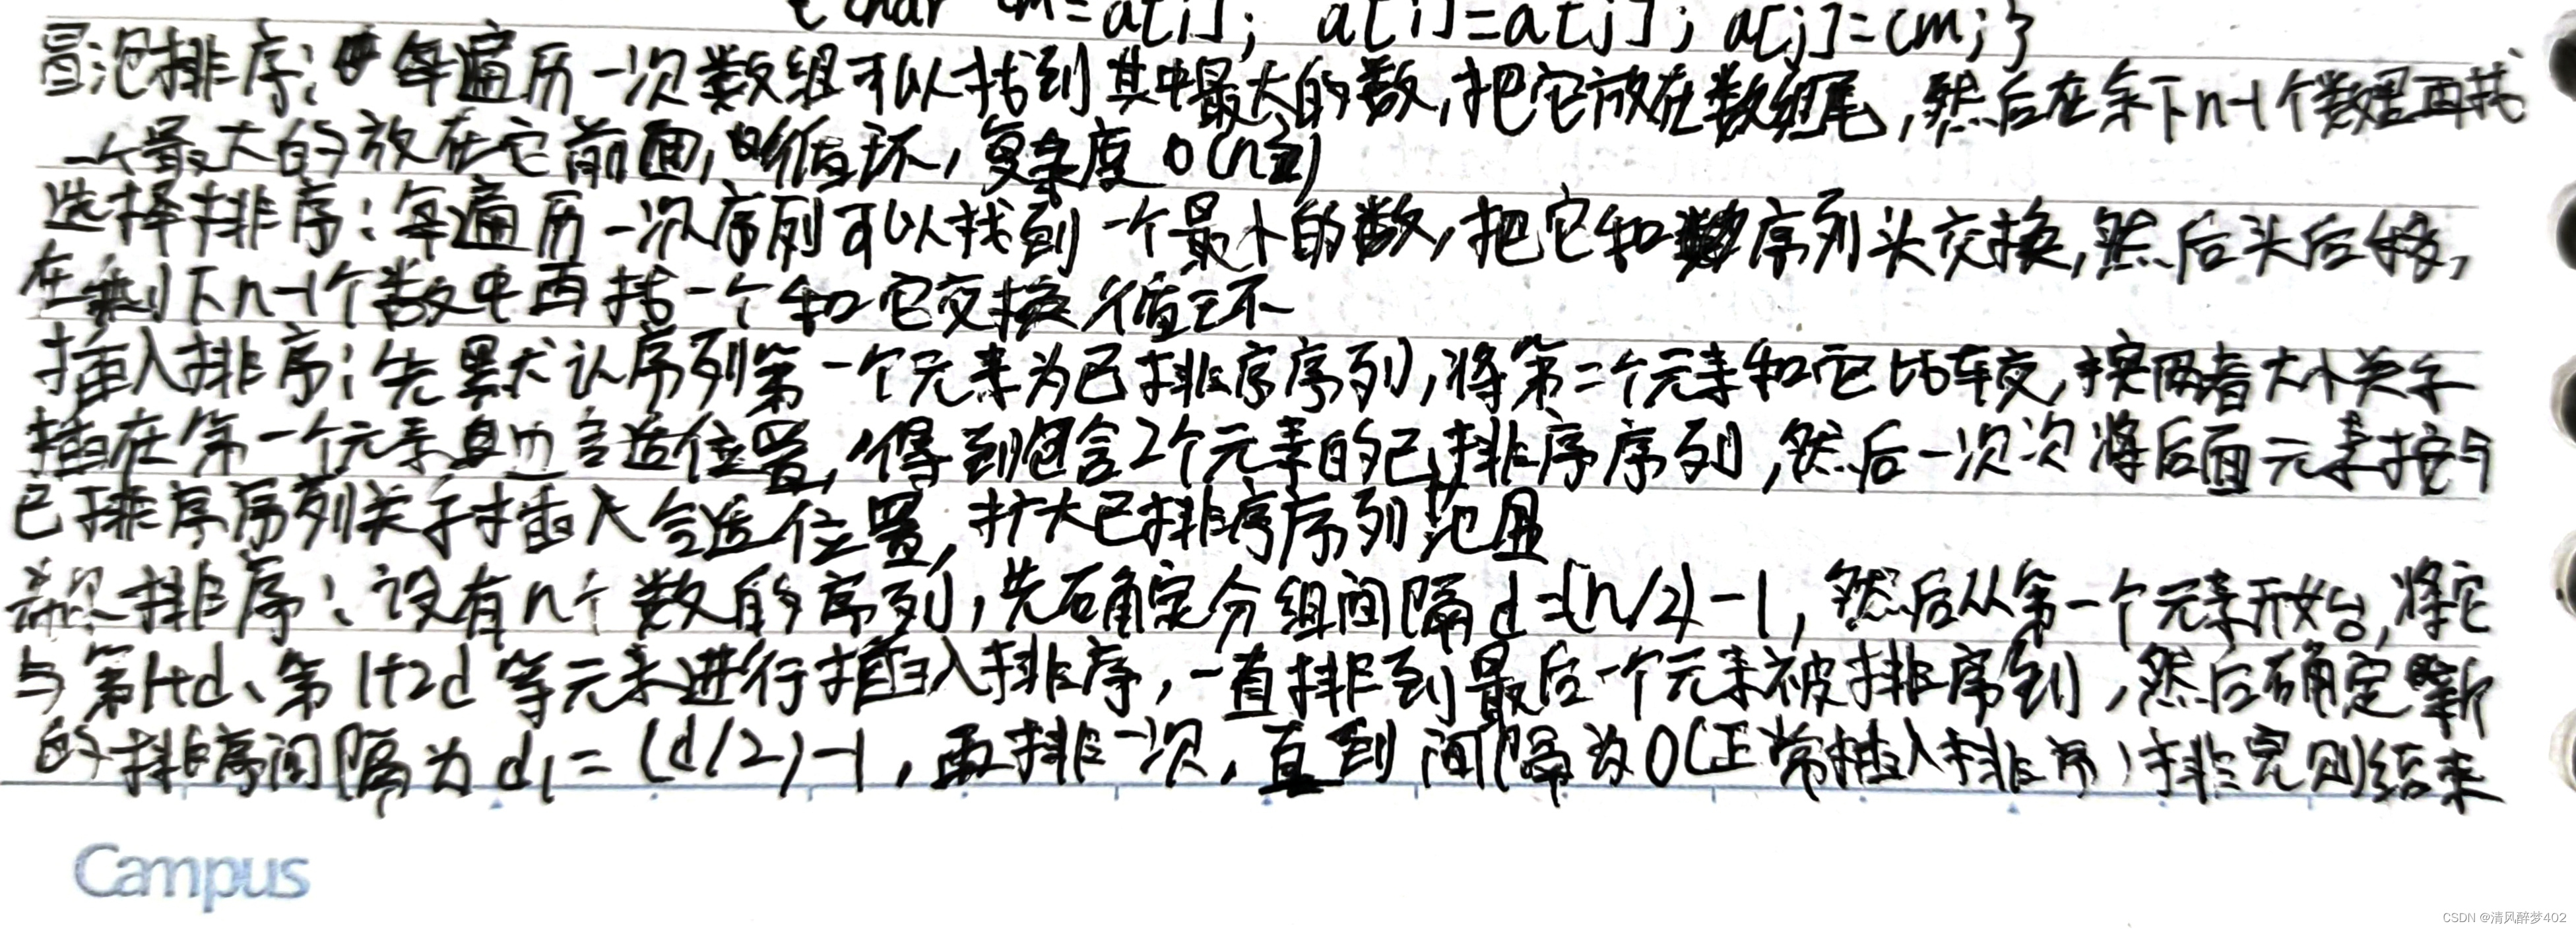 {char cm=a[i]; a[i]=a[j]; a[j]=cm;}
冒泡排序:每遍历一次数组可以找到其中最大的数,把它放在数组尾,然后在余下n-1个数里再找
一个最大的放在它前面,循环,复杂度O(n²)
选择排序:每遍历一次序列可以找到一个最小的数,把它和序列头交换,然后头后移,
在剩下n-1个数中再找一个和它交换,循环
插入排序:先默认序列第一个元素为已排序序列,将第二个元素和它比较,按两者大小关系
插在第一个元素身边合适位置,得到包含2个元素的已排序序列,然后一次次将后面元素按与
已排序序列关系插入合适位置,扩大已排序序列范围
希尔排序:设有n个数的序列,先确定分组间隔d=(n/2)-1,然后从第一个元素开始,将它
与第1+d、第1+2d等元素进行插入排序,一直排到最后一个元素被排序到,然后确定新
的排序间隔为d₁=(d/2)-1,再排一次,直到间隔为0(正常插入排序)排完则结束
Campus
CSDN @清风醉梦402